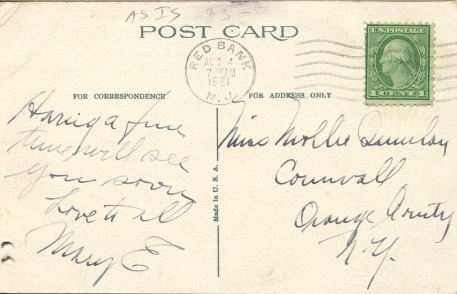 AS IS
POST CARD
U.S. POSTAGE
1 CENTS 1
RED BANK
AUG 4
7 AM
1921
N.J.
FOR CORRESPONDENCE
FOR ADDRESS ONLY
Having a fine
time will see
you soon
Love to all
Mary E
Made in U.S.A.
Miss Mollie
Cornwall
Orange County
N.Y.